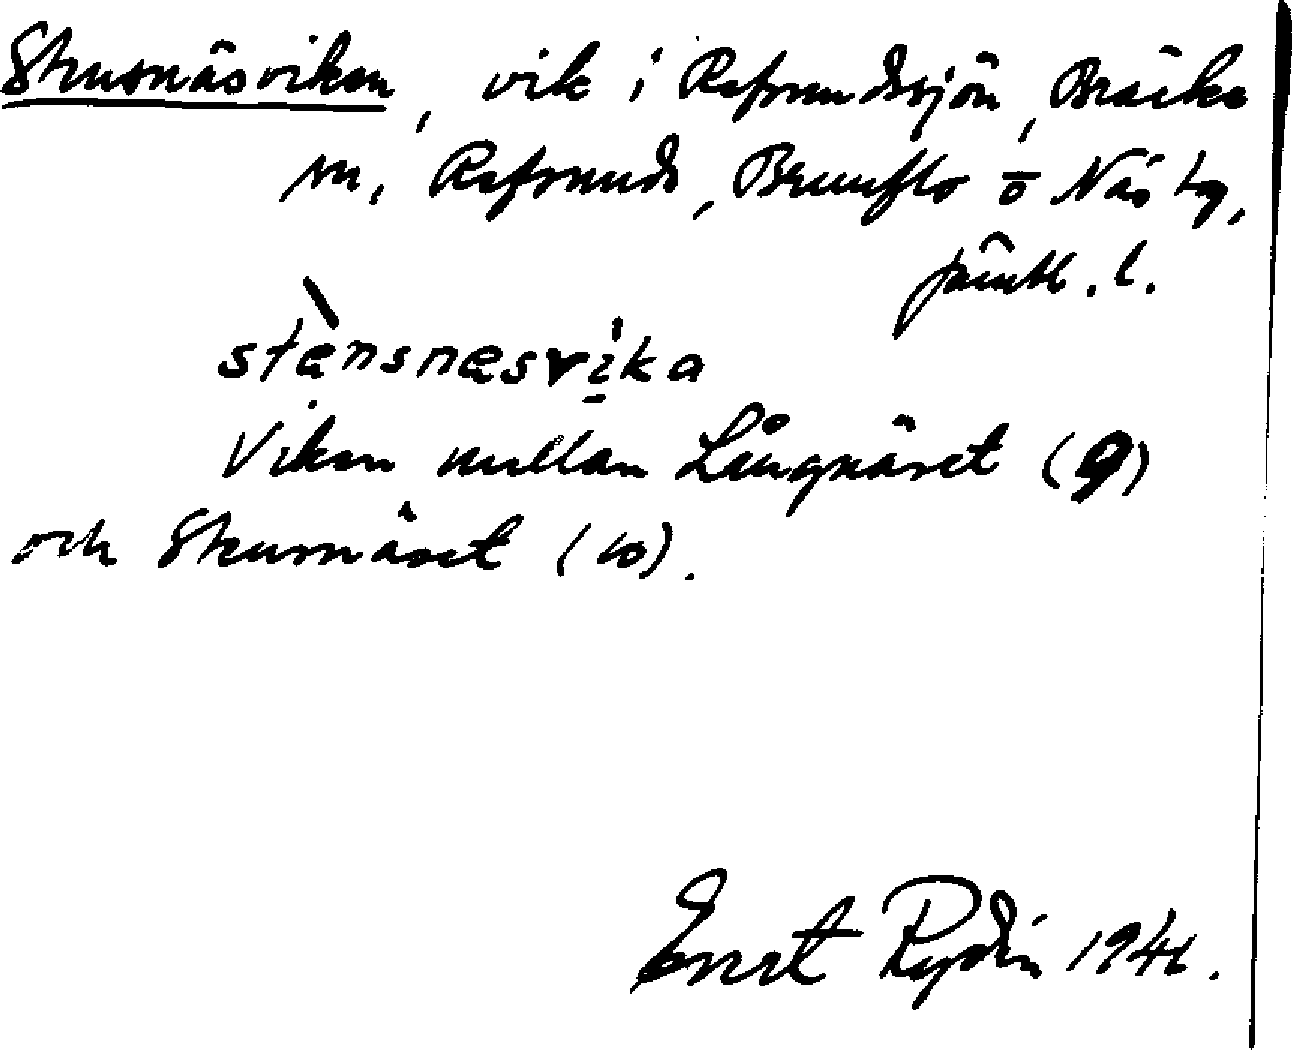 Stensnäsviken, vik i Refsundssjön, Bräcke
sn, Refsunds, Brunflo o Näs tg,
Jämtl. l.
stènsnæsvika
Viken mellan Långnäset (9)
och Stensnäset (10).
Ernst Rydin 1941.